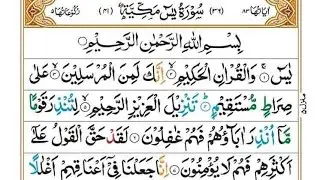 اٰیاتُهَا ٨٣ (٣٦) سُوْرَةُ یٰسٓ مَكِّیَّةٌ (٤١) رُكُوْعَاتُهَا ٥
بِسْمِ اللّٰهِ الرَّحْمٰنِ الرَّحِیْمِ
یٰسٓ ۚ وَالْقُرْاٰنِ الْحَكِیْمِ ۙ اِنَّكَ لَمِنَ الْمُرْسَلِیْنَ ۙ عَلٰی
صِرَاطٍ مُّسْتَقِیْمٍ ؕ تَنْزِیْلَ الْعَزِیْزِ الرَّحِیْمِ ۙ لِتُنْذِرَ قَوْمًا
مَّاۤ اُنْذِرَ اٰبَآؤُهُمْ فَهُمْ غٰفِلُوْنَ ۟ لَقَدْ حَقَّ الْقَوْلُ عَلٰۤی
اَكْثَرِهِمْ فَهُمْ لَا یُؤْمِنُوْنَ ۟ اِنَّا جَعَلْنَا فِیْۤ اَعْنَاقِهِمْ اَغْلٰلًا